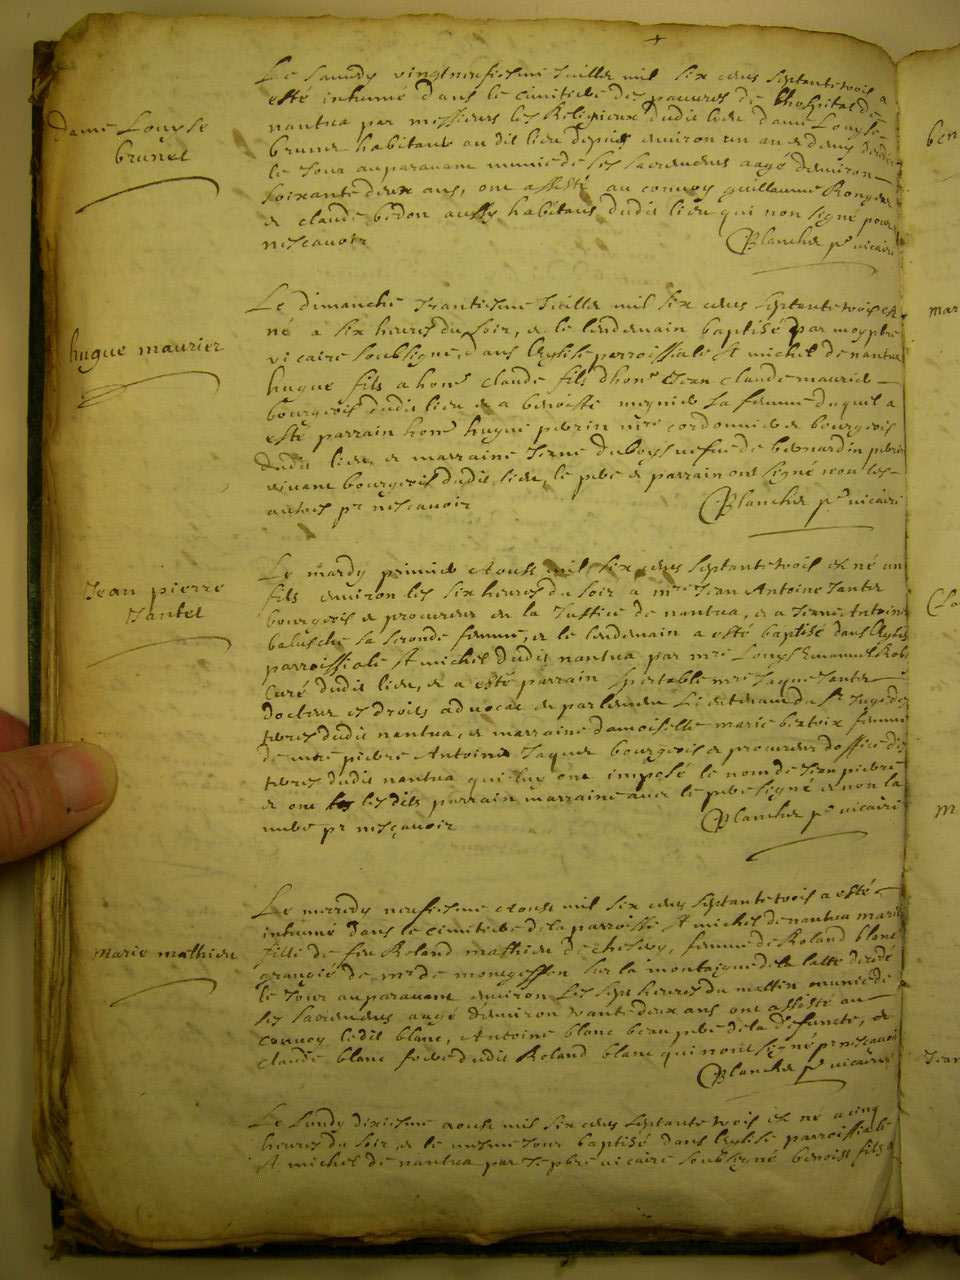 dame Louyse
brunet
Le samedy vingtneufiesme Juillet mil six cens septante trois a
esté inhumé dans le cimitiere des pauvres de l'hospital de
nantua par messieurs les Religieux dudit lieu dame Louyse
brunet habitant au dit lieu depuis environ un an & demy
le Jour auparavant munie de ses sacremens aagé denviron
soixante deux ans, ont assisté au convoy guillaume
& claude bedon aussy habitans dudit lieu qui non signé pour
nescavoir Blanchet pbre vicaire
hugue maurier
Le dimanche trantiesme Juillet mil six cens septante trois est
né a six heures du soir, & le lendemain baptisé par moy pbre
vicaire soubsigné, dans leglise parroissiale st michel de nantua
hugue fils a hon. claude fils dhon. Jean claude maurier
bourgeois dudit lieu & a benoiste sa femme duquel a
esté parrain hon. hugue perrin mre cordonnier & bourgeois
dudit lieu, & marraine vefue de bernardin
vivant bourgeois dudit lieu, le pere & parrain ont signé non les
autres pr nescavoir Blanchet pbre vicaire
Jean pierre
Jantet
Le mardy premier Aoust mil six cens septante trois est né un
fils environ les six heures du soir a mre Jean Antoine Jantet
bourgeois & procureur en la Justice de nantua, & a Jeanne Antoine
sa seconde femme, & le lendemain a esté baptisé dans leglise
parroissiale st michel dudit nantua par mre Louys Emanuel
curé dudit lieu, & a esté parrain spectable mre Jantet
docteur es droits advocat en parlement Lieutenant du Sr Juge des
terres dudit nantua, & marraine damoiselle marie femme
de mre pierre Antoine bourgeois & procureur doffice des
terres dudit nantua qui luy ont imposé le nom de Jean pierre
& ont les dits parrain marraine avec le pere signé & non la
mere pr nescavoir Blanchet pbre vicaire
marie mathieu
Le mecredy neufiesme Aoust mil six cens septante trois a esté
inhumé dans le cimitiere de la parroisse st michel de nantua marie
fille de feu Roland mathieu de femme de Roland blanc
grangié de mr de sur la montaigne de
le Jour auparavant environ les sept heures du mattin munie de
ses sacremens aagé denviron deux ans ont assisté au
convoy ledit blanc, Antoine blanc beau pere de la defuncte, &
claude blanc frere dudit Roland blanc qui nont signé pr nescavoir
Blanchet pbre vicaire
Le Lundy dixiesme aoust mil six cens septante trois est né a cinq
heures du soir, & le mesme Jour baptisé dans leglise parroissiale
st michel de nantua par pbre vicaire soubsigné benoist fils